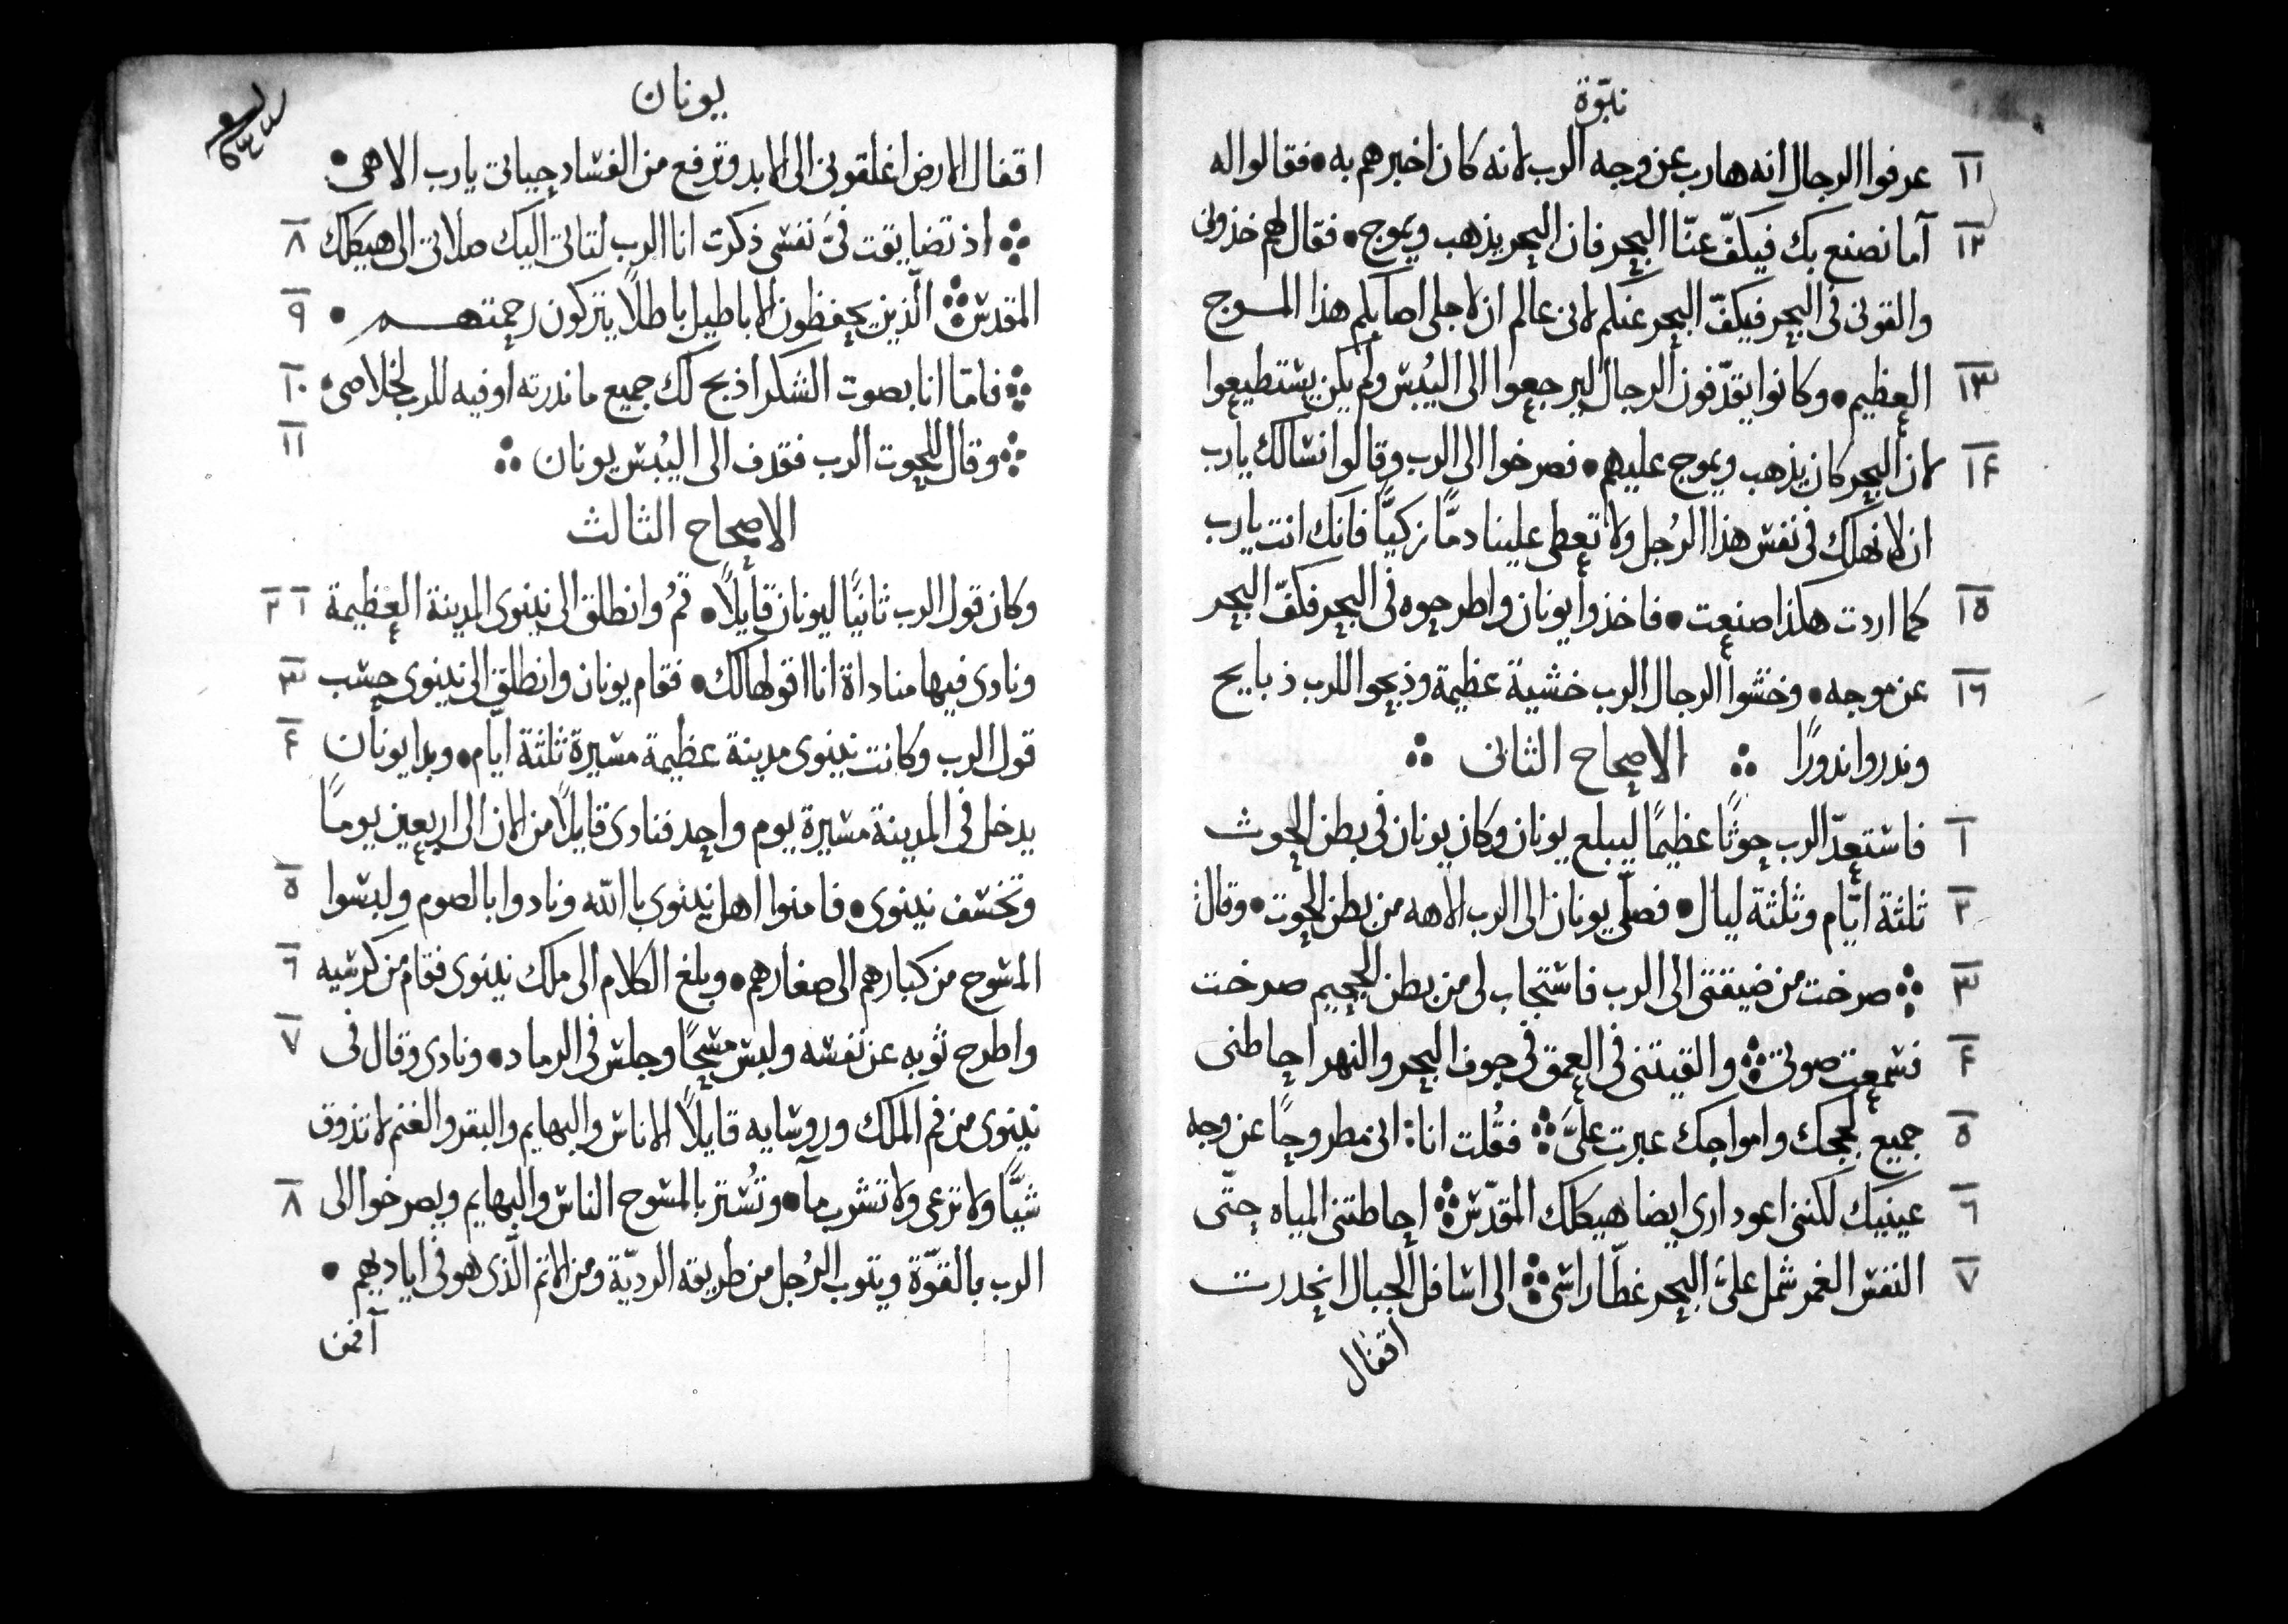 نبوّة
١١ عرفوا الرجال انه هارب عن وجه الرب لانه كان اخبرهم به • فقالوا له
١٢ آما نصنع بك فيكفّ عنّا البحر فان البحر يذهب ويموج • فقال لهم خذونى
والقونى فى البحر فيكفّ البحر عنكم لانى عالم ان لاجلى اصابكم هذا المـوج
١٣ العظيم • وكانوا يقدّفون الرجال ليرجعوا الى اليُبس ولم يكن يستطيعوا
١۴ لان البحر كان يذهب ويموج عليهم • فصرخوا الى الرب وقالوا نسالك يارب
ان لا نهلك فى نفس هذا الرُجل ولا تعطى علينا دمًّا زكيًّا فانك انت يارب
١٥ كما اردت هكذا صنعت • فاخذوا يونان واطرحوه فى البحر فكفّ البحر
١٦ عن موجه • وخشوا الرجال الرب خشية عظيمة وذبحوا للرب ذبايح
وندروا ندورًا ∴ الاصحاح الثانى ∴
١ فاستعدّ الرب حوتًا عظيمًا ليبلع يونان وكان يونان فى بطن الحوت
٢ ثلثة ايّام وثلثة ليال • فصلّى يونان الى الرب الاهه من بطن الحوت • وقال
٣ ܀ صرخت من ضيقتى الى الرب فاستجاب لى من بطن الجحيم صرخت
۴ فسمعت صوتى ܀ والقيتنى فى العمق فى جوف البحر والنهر احاطنى
٥ جميع لججك وامواجك عبرت علىَّ ܀ فقُلت انا: انى مطروحًا عن وجه
٦ عينيك لكننى اعود ارى ايضا هيكلك المقدّس ܀ احاطتنى المياه حتّى
٧ النفس الغمر شمل علىَّ البحر غطّا راسى ܀ الى اسافل الجبال انحدرت
اقفال
يونان
اقفال الارض اغلقونى الى الابد وترفع من الفساد حياتى يارب الاهى •
٨ ܀ اذ تضايقت فىَّ نفسى ذكرت انا الرب لتاتى اليك صلاتى الى هيكلك
٩ المقدس ܀ الّذين يحفظون الاباطيل باطلًا يتركون رحمتهـــم •
١٠ ܀ فامّا انا بصوت الشكر اذبح لك جميع ما ندرته اوفيه للرب لخلاصى •
١١ ܀ وقال للحوت الرب فقدف الى اليُبس يونان ܀
الاصحاح الثالث
١ ٢ وكان قول الرب ثانيًا ليونان قايلًا • قمُ وانطلق الى نينوى المدينة العظيمة
٣ ونادى فيها مناداة انا اقولها لك • فقام يونان وانطلق الى نينوى حسب
۴ قول الرب وكانت نينوى مدينة عظيمة مسيرة ثلثة ايّام • وبدا يونان
يدخل فى المدينة مسيرة يوم واحد فنادى قايلًا من الان الى اربعين يومًا
٥ وتخسف نينوى • فامنوا اهل نينوى باالله ونادوا بالصوم ولبسوا
٦ المسوح من كبارهم الى صغارهم • وبلغ الكلام الى ملك نينوى فقام من كرسيه
٧ واطرح ثوبه عن نفسه ولبس مسحًا وجلس فى الرماد • ونادى وقال فى
نينوى من فم الملك وروسايه قايلًا الاناس والبهايم والبقر والغنم لا تذوق
٨ شيًّا ولا ترعى ولا تشرب مآ • وتُستر بالمسوح الناس والبهايم ويصرخوا الى
الرب بالقوّة ويتوب الرُجل من طريقه الرديّة ومن الاثم الّذى هو فى اياديهم •
آفمن